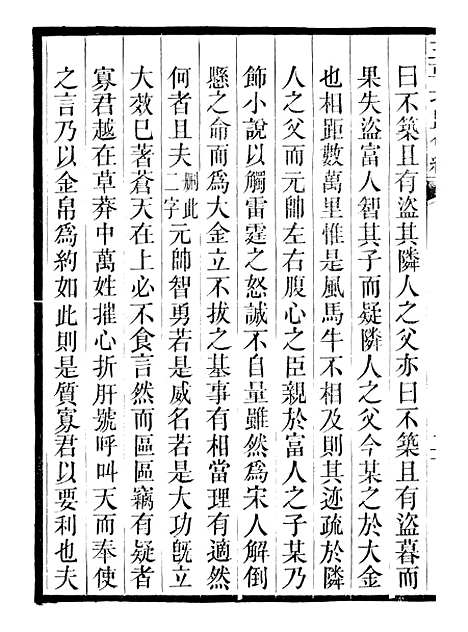 曰不築且有盜其隣人之父亦曰不築且有盜暮而
果失盜富人智其子而疑隣人之父今某之於大金
也相距數萬里惟是風馬牛不相及則其迹疏於隣
人之父而元帥左右腹心之臣親於富人之子某乃
飾小說以觸雷霆之怒誠不自量雖然為宋人解倒
懸之命而為大金立不拔之基事有相當理有適然
何者且夫刪此二字元帥智勇若是威名若是大功旣立
大效巳著蒼天在上必不食言然而區區竊有疑者
寡君越在草莽中萬姓摧心折肝號呼叫天而奉使
之言乃以金帛為約如此則是質寡君以要利也夫